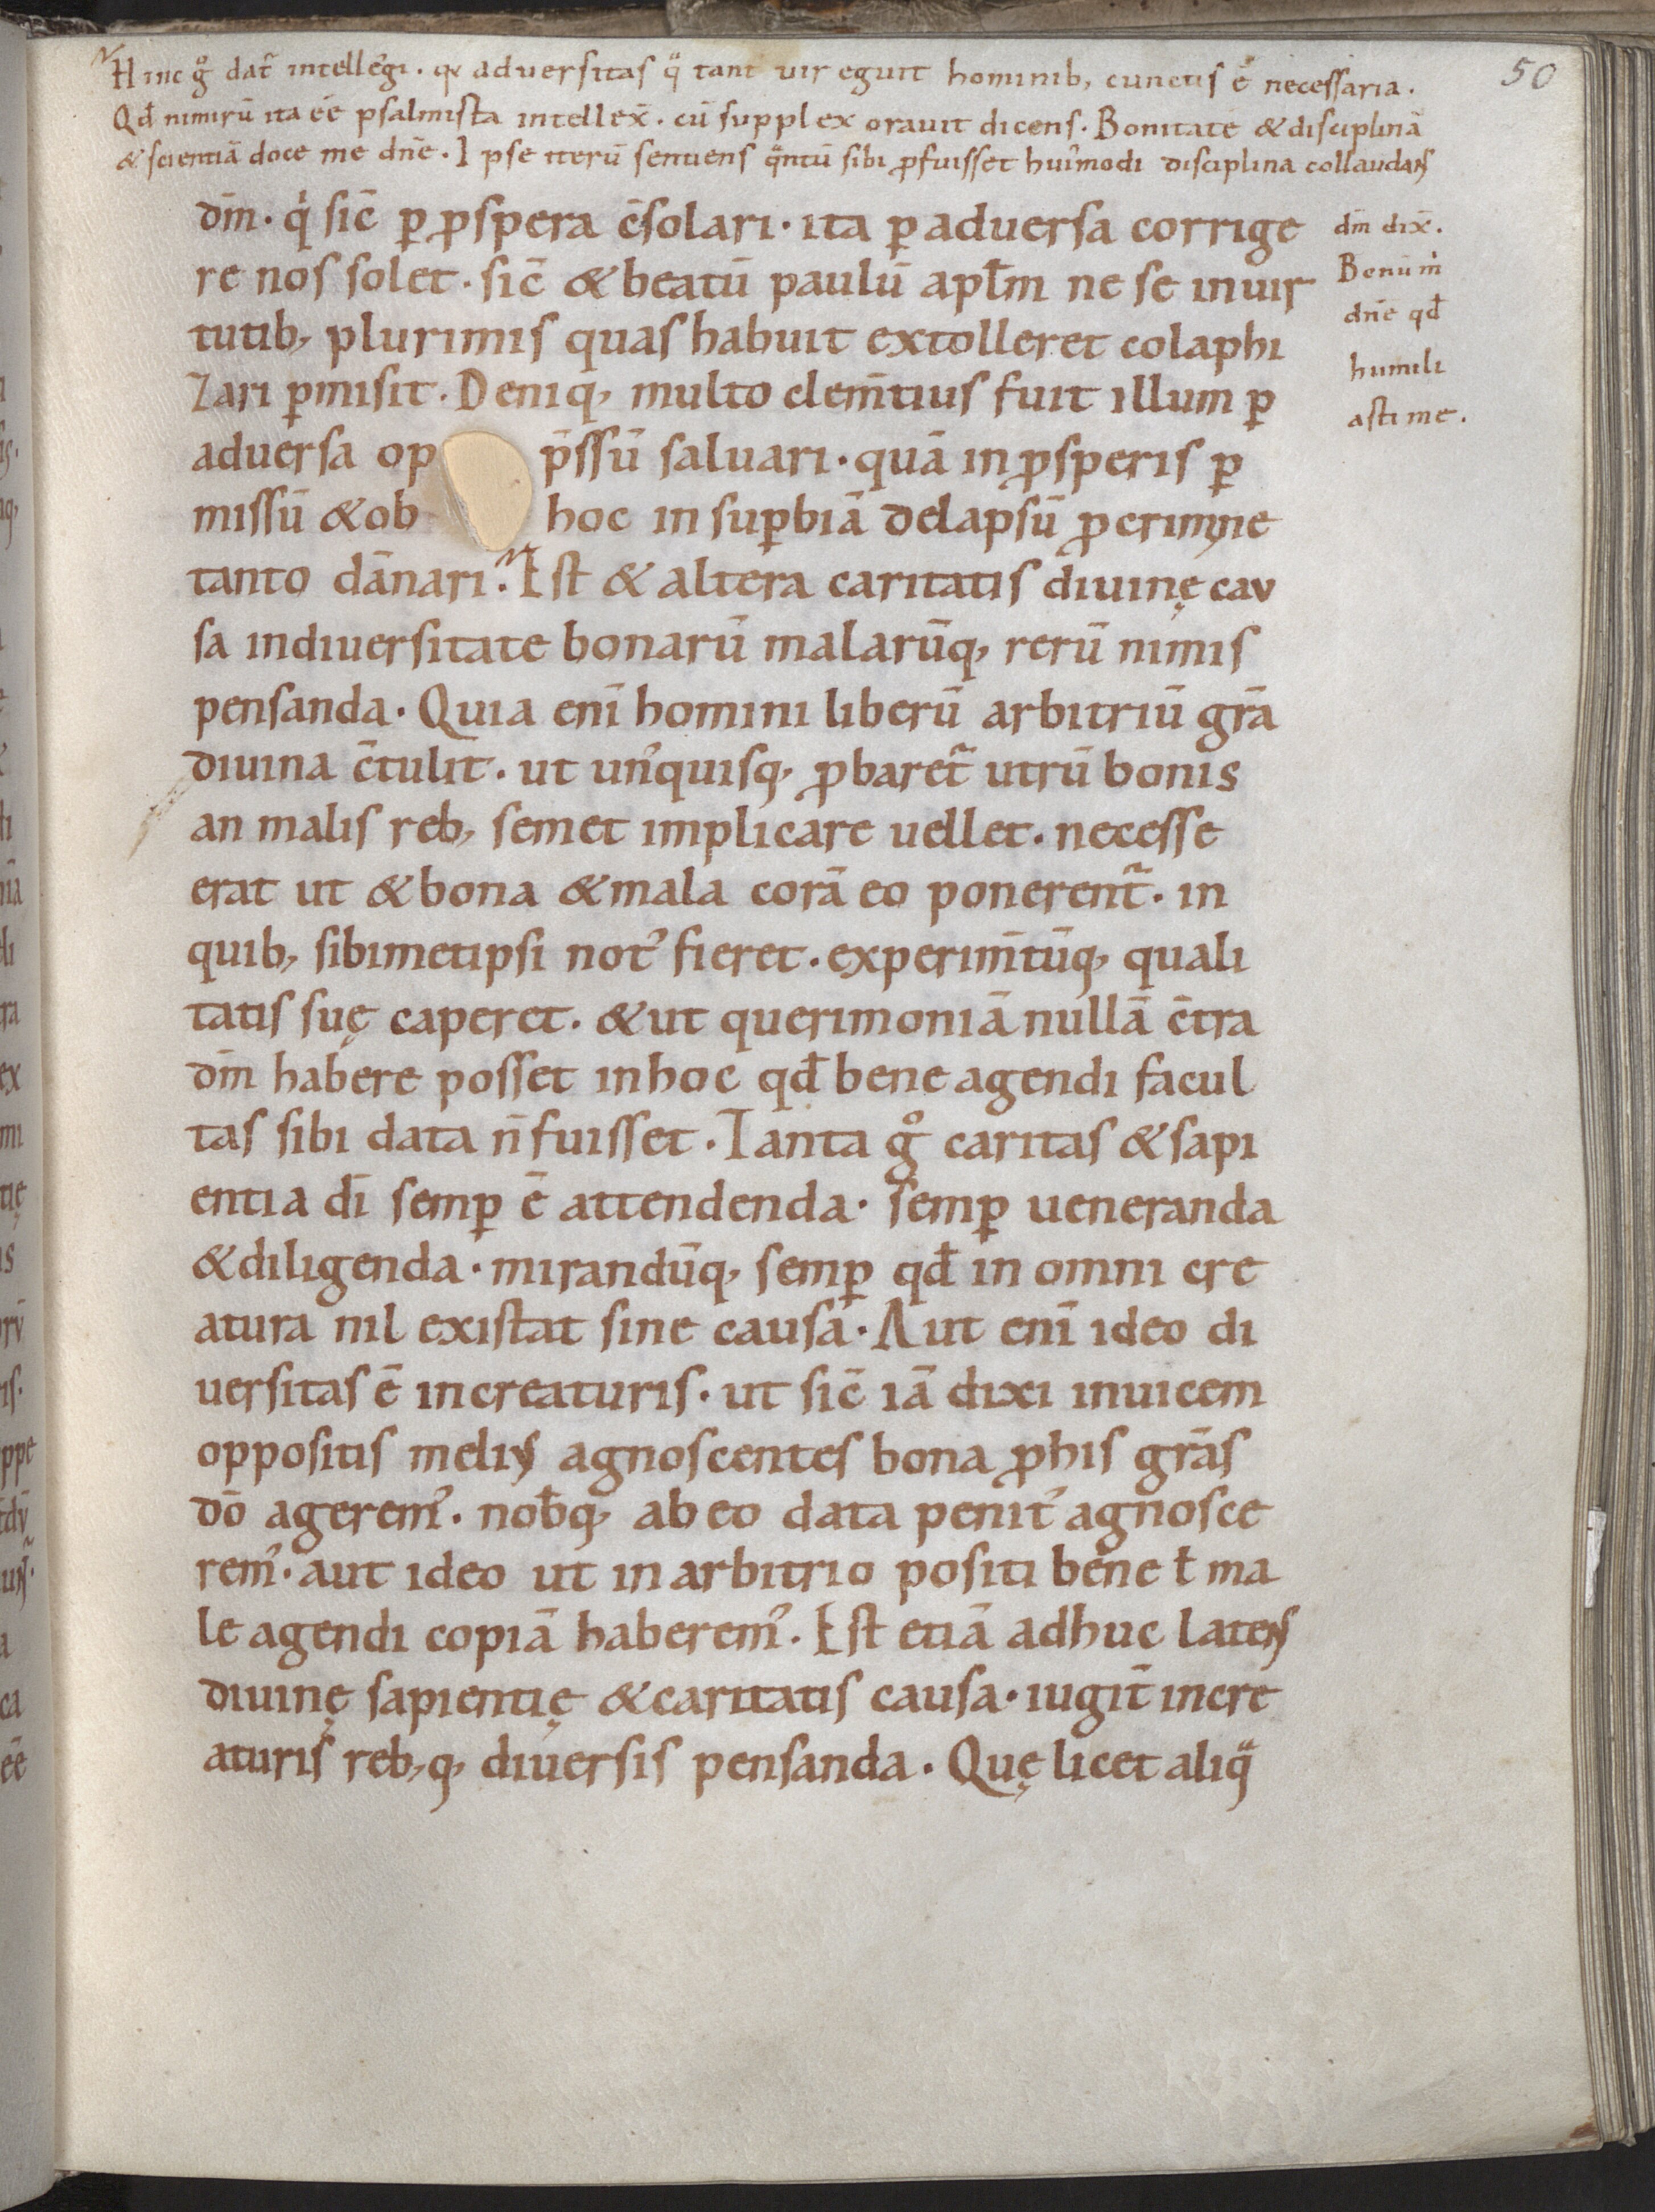 50
H inc gͦ dat᷑ intellegi · qv adversitas qͣ tant᾽ vir eguit hominib, cunctis ē necessaria .
Qđ nimirū ita éé psalmista intellex̄ · cū supplex oravit dicens · Bonitatē & disciplinā
& scientiā doce me dn̄e · Ipse iterū sentiens qͣntū sibi ꝓfuisset hui᾽modi disciplina collaudans
dm̄ dix̄ .
Bonū m̍
dn̄e qđ
humili
asti me .
dm̄ · qͥ sic̄ ꝑ ꝓspera c̄solari · ita ꝑ adversa corrige
re nos solet · sic̄ & beatū paulū apl̄m ne se in uir
tutib, plurimis quas habuit extolleret colaphi
zari ꝑmisit · Deniq, multo clem̄tius fuit illum ꝑ
aduersa op p̄ssū saluari · quā in ꝓsperis ꝑ
missū & ob hoc in suꝑbiā delapsū ꝓ crimine
tanto dānari . Est & altera caritatis diuinę cav
sa in diuersitate bonarū malarūq, rerū nimis
pensanda · Quia enī homini liberū arbitriū grā
diuina c̄tulit · ut un᾽quisq, ꝓbaret᷑ utrū bonis
an malis reb, semet implicare uellet · necesse
erat ut & bona & mala corā eo ponerent᷑ · in
quib, sibimetipsi not᾽ fieret · experim̄tūq, quali
tatis suę caperet · & ut querimoniā nullā c̄tra
dm̄ habere posset in hoc qđ bene agendi facul
tas sibi data n̄ fuisset · Tanta gͦ caritas & sapi
entia dī semꝑ ē attendenda · semꝑ ueneranda
& diligenda · mirandūq, semꝑ qđ in omni cre
atura nil existat sine causa · Aut enī ideo di
uersitas ē in creaturis · ut sic̄ iā dixi inuicem
oppositis melius agnoscentes bona ꝓ his grās
dō agerem᾽ · nob̄q, ab eo data penit᾽ agnosce
rem᾽ · aut ideo ut in arbitrio positi bene ł ma
le agendi copiā haberem᾽ · Est etiā adhuc latens
diuinę sapientię & caritatis causa · iugit̄ in cre
aturis reb,q, diuersis pensanda · Quę licet aliqͣ